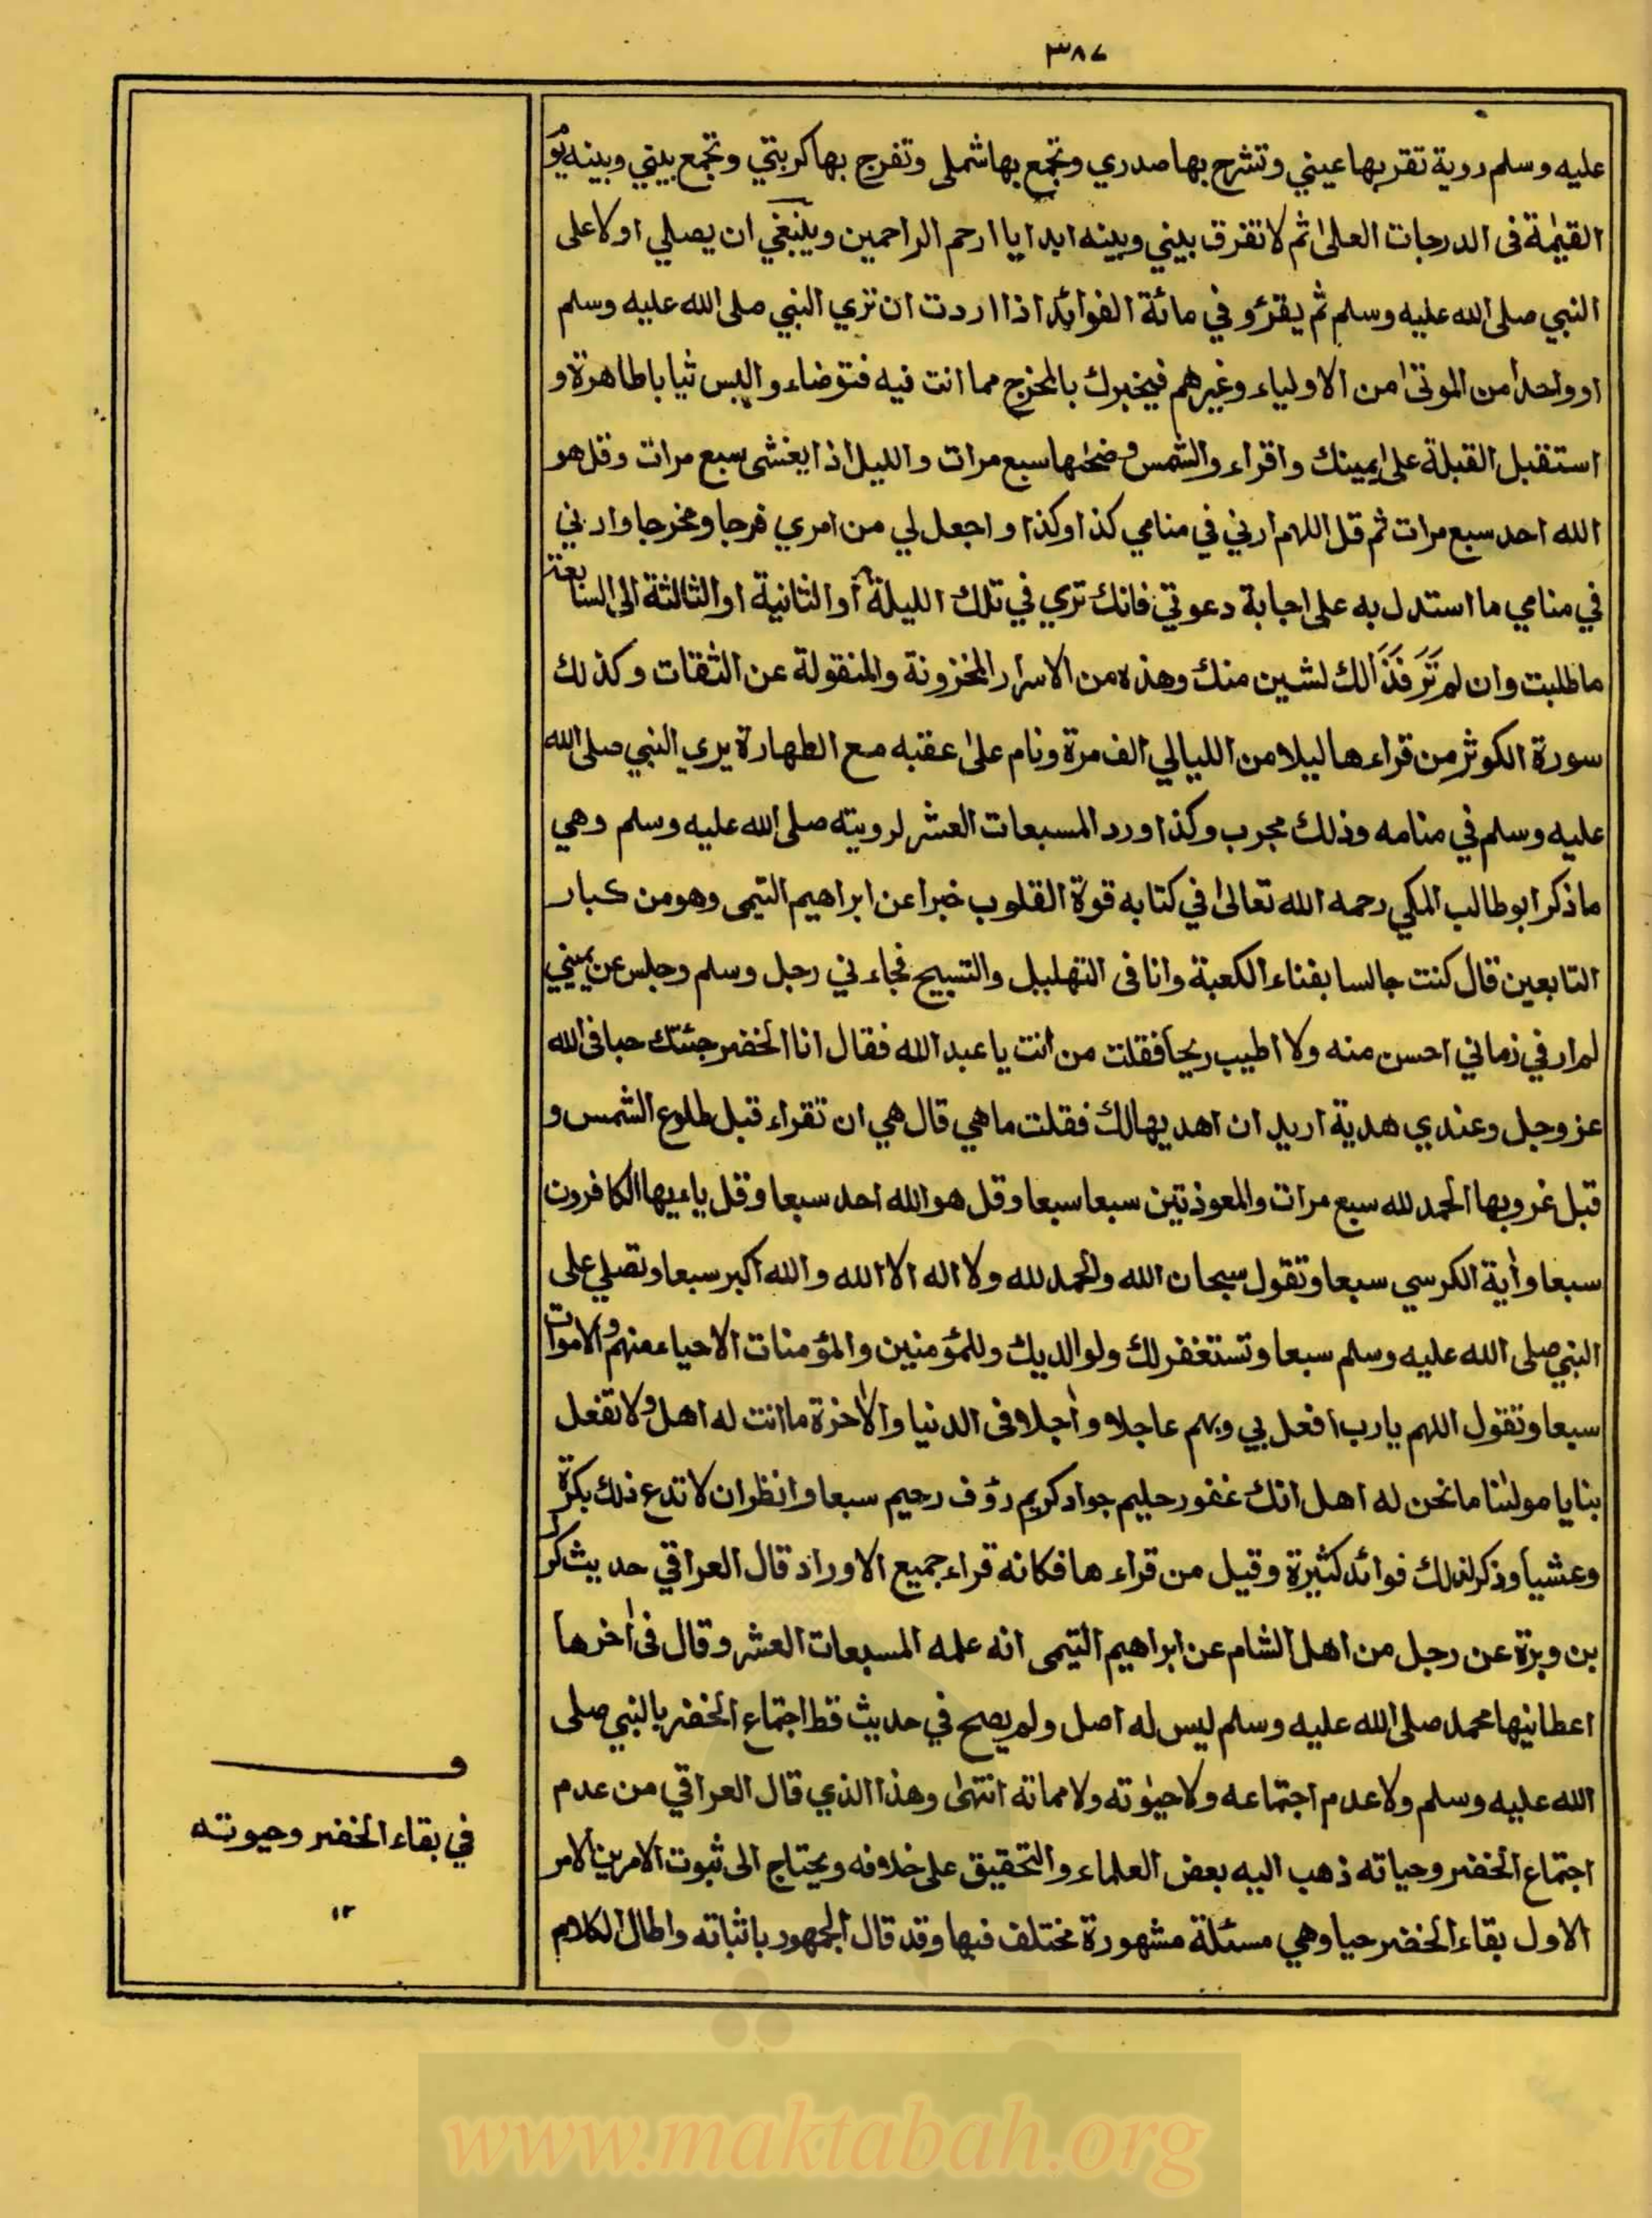 ٣٨٧
عليه وسلم روية تقر بها عيني وتشرح بها صدري وتجمع بها شملى وتفرج بها كربتي وتجمع بيني وبينه يوم
القيمة فى الدرجات العلى ثم لا تفرق بيني وبينه ابدا يا ارحم الراحمين وينبغي ان يصلي اولا على
النبي صلى الله عليه وسلم ثم يقرؤ وفي مائة الفوائد اذا اردت ان تري النبي صلى الله عليه وسلم
او واحدا من الموتى من الاولياء وغيرهم فيخبرك بالمخرج مما انت فيه فتوضاء والبس ثيابا طاهرة و
استقبل القبلة على يمينك واقراء والشمس وضحها سبع مرات والليل اذا يغشى سبع مرات وقل هو
الله احد سبع مرات ثم قل اللهم ارني في منامي كذا وكذا واجعل لي من امري فرجا ومخرجا وارني
في منامي ما استدل به على اجابة دعوتي فانك تري في تلك الليلة أو الثانية او الثالثة الى السابعة
ما طلبت وان لم تَرَ فَذَالك لشين منك وهذه من الاسرار المخزونة والمنقولة عن الثقات وكذلك
سورة الكوثر من قراءها ليلا من الليالي الف مرة ونام على عقبه مع الطهارة يري النبي صلى الله
عليه وسلم في منامه وذلك مجرب وكذا ورد المسبعات العشر لرويته صلى الله عليه وسلم وهي
ما ذكر ابو طالب المكي رحمه الله تعالى في كتابه قوة القلوب خبرا عن ابراهيم التيمى وهو من كبار
التابعين قال كنت جالسا بفناء الكعبة وانا فى التهليل والتسبيح فجاءني رجل وسلم وجلس عن يميني
لم ار في زماني احسن منه ولا اطيب ريحا فقلت من انت يا عبد الله فقال انا الخضر جئتك حبا فى الله
عز وجل وعندي هدية اريد ان اهديها لك فقلت ما هي قال هي ان تقراء قبل طلوع الشمس و
قبل غروبها الحمد لله سبع مرات والمعوذتين سبعا سبعا وقل هو الله احد سبعا وقل ياءيها الكافرون
سبعا وأية الكرسي سبعا وتقول سبحان الله والحمد لله ولا اله الا الله والله اكبر سبعا وتصلي على
النبي صلى الله عليه وسلم سبعا وتستغفر لك ولوالديك وللمؤمنين والمؤمنات الاحياء منهم والاموات
سبعا وتقول اللهم يا رب افعل بي وبهم عاجلا وأجلا فى الدنيا والأخرة ما انت له اهل ولا تفعل
بنا يا مولنا ما نحن له اهل انك غفور حليم جواد كريم رؤف رحيم سبعا وانظر ان لا تدع ذلك بكرة
وعشيا وذكر لذلك فوائد كثيرة وقيل من قراءها فكانه قراء جميع الاوراد قال العراقي حديث كرز
بن وبرة عن رجل من اهل الشام عن ابراهيم التيمى انه علمه المسبعات العشر وقال فى أخرها
اعطانيها محمد صلى الله عليه وسلم ليس له اصل ولم يصح في حديث قط اجتماع الخضر بالنبي صلى
الله عليه وسلم ولا عدم اجتماعه ولا حيوته ولا مماته انتهى وهذا الذي قال العراقي من عدم
اجتماع الخضر وحياته ذهب اليه بعض العلماء والتحقيق على خلافه ويحتاج الى ثبوت الامرين الامر
الاول بقاء الخضر حيا وهي مسئلة مشهورة مختلف فيها وقد قال الجمهور باثباته واطال الكلام
في بقاء الخضر وحيوته
١٢
www.maktabah.org